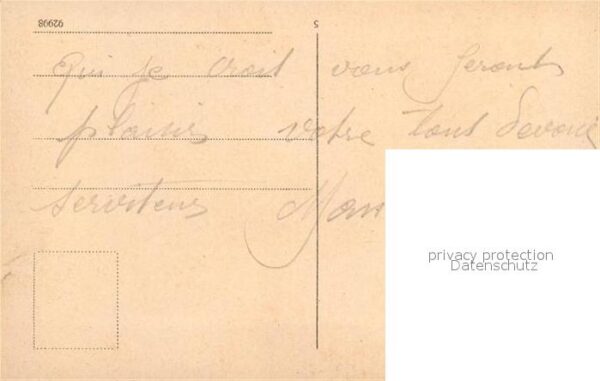 92998
5
Qui je croit vous feront
plaisir votre tout devoué
serviteur
privacy protection
Datenschutz